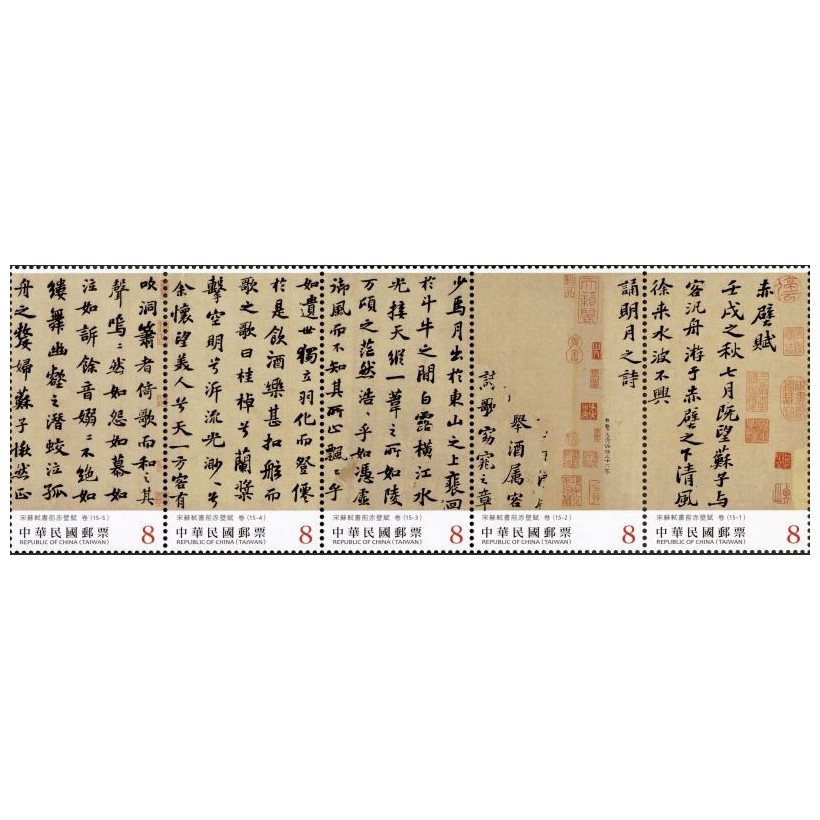 赤壁賦
壬戌之秋七月既望蘇子與
客汎舟游于赤壁之下清風
徐来水波不興
宋蘇軾書前赤壁賦 卷 (15-1)
中華民國郵票 8
REPUBLIC OF CHINA (TAIWAN)
誦明月之詩
舉酒属客
歌窈窕之章
宋蘇軾書前赤壁賦 卷 (15-2)
中華民國郵票 8
REPUBLIC OF CHINA (TAIWAN)
少焉月出於東山之上裵回
於斗牛之間白露横江水
光接天縱一葦之所如陵
万頃之茫然浩〻乎如憑虚
御風而不知其所止飄〻乎
宋蘇軾書前赤壁賦 卷 (15-3)
中華民國郵票 8
REPUBLIC OF CHINA (TAIWAN)
如遺世獨立羽化而登僊
於是飲酒樂甚扣舷而
歌之歌曰桂棹兮蘭槳
擊空明兮泝流光渺〻兮
余懷望美人兮天一方客有
宋蘇軾書前赤壁賦 卷 (15-4)
中華民國郵票 8
REPUBLIC OF CHINA (TAIWAN)
吹洞簫者倚歌而和之其
聲嗚〻然如怨如慕如
泣如訴餘音嫋〻不絶如
縷舞幽壑之潜蛟泣孤
舟之嫠婦蘇子愀然正
宋蘇軾書前赤壁賦 卷 (15-5)
中華民國郵票 8
REPUBLIC OF CHINA (TAIWAN)